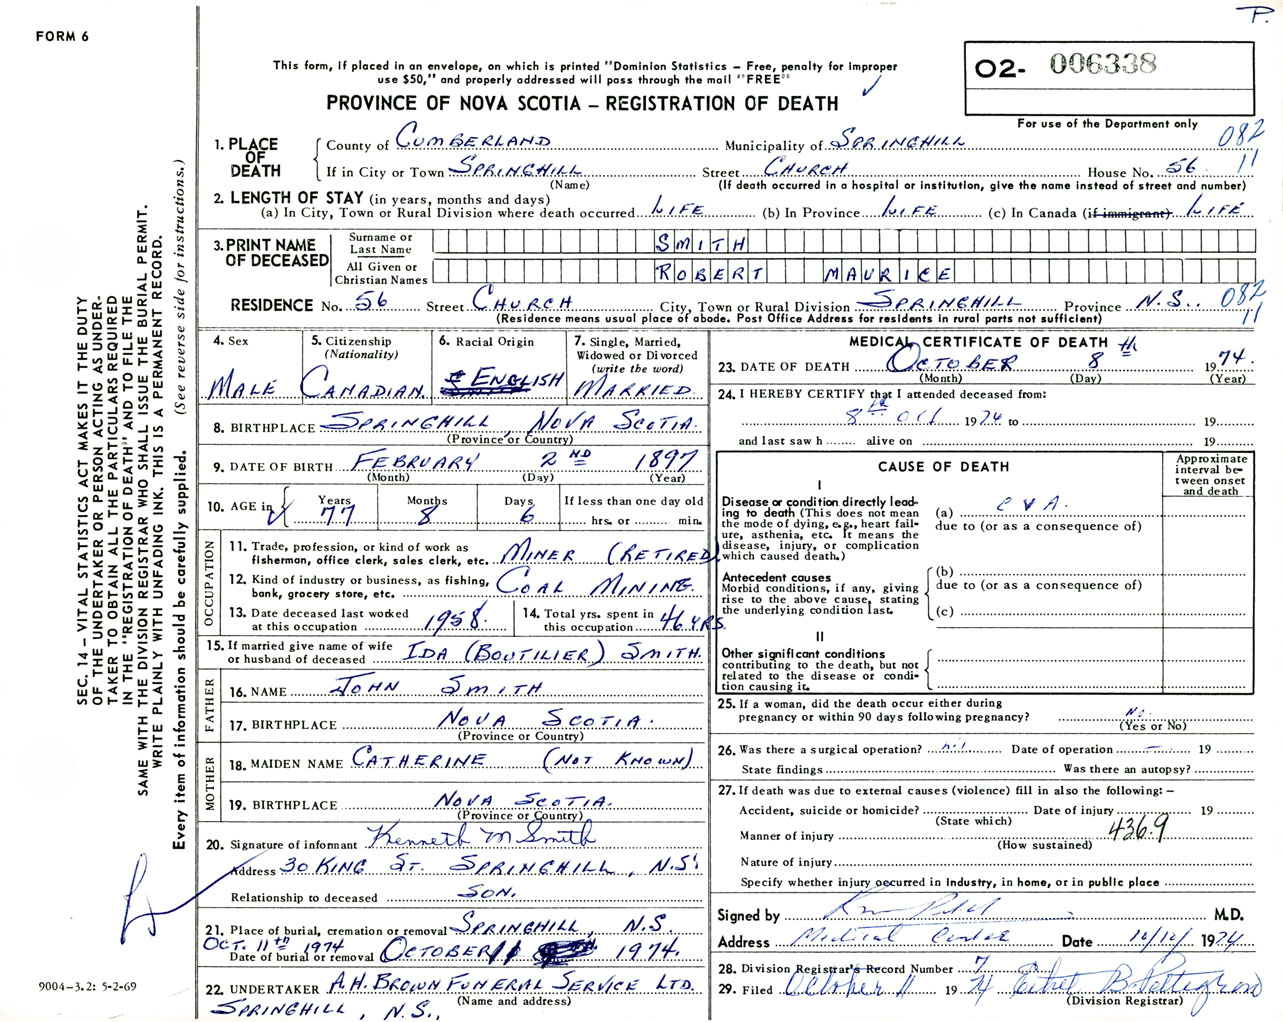 P.
FORM 6
This form, if placed in an envelope, on which is printed "Dominion Statistics – Free, penalty for improper
use $50," and properly addressed will pass through the mail "FREE"
PROVINCE OF NOVA SCOTIA – REGISTRATION OF DEATH
O2- 006338
For use of the Department only
082
11
1. PLACE OF DEATH
County of CUMBERLAND Municipality of SPRINGHILL
If in City or Town SPRINGHILL Street CHURCH House No. 56
(Name) (If death occurred in a hospital or institution, give the name instead of street and number)
2. LENGTH OF STAY (in years, months and days)
(a) In City, Town or Rural Division where death occurred LIFE (b) In Province LIFE (c) In Canada (if immigrant) LIFE
3. PRINT NAME OF DECEASED
Surname or Last Name SMITH
All Given or Christian Names ROBERT MAURICE
RESIDENCE No. 56 Street CHURCH City, Town or Rural Division SPRINGHILL Province N.S. 082
11
(Residence means usual place of abode. Post Office Address for residents in rural parts not sufficient)
4. Sex
MALE
5. Citizenship
(Nationality)
CANADIAN.
6. Racial Origin
ENGLISH
7. Single, Married,
Widowed or Divorced
(write the word)
MARRIED.
8. BIRTHPLACE SPRINGHILL, NOVA SCOTIA.
(Province or Country)
9. DATE OF BIRTH FEBRUARY 2ND 1897
(Month) (Day) (Year)
10. AGE in Years 77 Months 8 Days 6 If less than one day old
hrs. or min.
OCCUPATION
11. Trade, profession, or kind of work as
fisherman, office clerk, sales clerk, etc. MINER (RETIRED)
12. Kind of industry or business, as fishing,
bank, grocery store, etc. COAL MINING.
13. Date deceased last worked
at this occupation 1958.
14. Total yrs. spent in
this occupation 46 YRS.
15. If married give name of wife
or husband of deceased IDA (BOUTILIER) SMITH.
FATHER
16. NAME JOHN SMITH
17. BIRTHPLACE NOVA SCOTIA.
(Province or Country)
MOTHER
18. MAIDEN NAME CATHERINE (NOT KNOWN)
19. BIRTHPLACE NOVA SCOTIA.
(Province or Country)
20. Signature of informant Kenneth M Smith
Address 30 KING ST. SPRINGHILL, N.S.
Relationship to deceased SON.
21. Place of burial, cremation or removal SPRINGHILL, N.S.
OCT. 11th 1974
Date of burial or removal OCTOBER 11 1974.
22. UNDERTAKER A.H. BROWN FUNERAL SERVICE LTD.
(Name and address)
SPRINGHILL, N.S.,
MEDICAL CERTIFICATE OF DEATH
23. DATE OF DEATH OCTOBER 8th 1974.
(Month) (Day) (Year)
24. I HEREBY CERTIFY that I attended deceased from:
8th Oct 1974 to 19
and last saw h alive on 19
CAUSE OF DEATH
Approximate
interval be-
tween onset
and death
I
Disease or condition directly lead-
ing to death (This does not mean
the mode of dying, e.g., heart fail-
ure, asthenia, etc. It means the
disease, injury, or complication
which caused death.)
(a) CVA.
due to (or as a consequence of)
Antecedent causes
Morbid conditions, if any, giving
rise to the above cause, stating
the underlying condition last.
(b)
due to (or as a consequence of)
(c)
II
Other significant conditions
contributing to the death, but not
related to the disease or condi-
tion causing it.
25. If a woman, did the death occur either during
pregnancy or within 90 days following pregnancy? No.
(Yes or No)
26. Was there a surgical operation? nil Date of operation — 19
State findings Was there an autopsy?
27. If death was due to external causes (violence) fill in also the following: –
Accident, suicide or homicide? Date of injury 19
(State which)
Manner of injury 436.9
(How sustained)
Nature of injury
Specify whether injury occurred in industry, in home, or in public place
Signed by M.D.
Address Medical Center Date 10/10/ 1974
28. Division Registrar's Record Number 7
29. Filed October 11 1974 Ethel B
(Division Registrar)
SEC. 14 – VITAL STATISTICS ACT MAKES IT THE DUTY
OF THE UNDERTAKER OR PERSON ACTING AS UNDER-
TAKER TO OBTAIN ALL THE PARTICULARS REQUIRED
IN THE "REGISTRATION OF DEATH" AND TO FILE THE
SAME WITH THE DIVISION REGISTRAR WHO SHALL ISSUE THE BURIAL PERMIT.
WRITE PLAINLY WITH UNFADING INK. THIS IS A PERMANENT RECORD.
Every item of information should be carefully supplied. (See reverse side for instructions.)
9004–3.2: 5-2-69